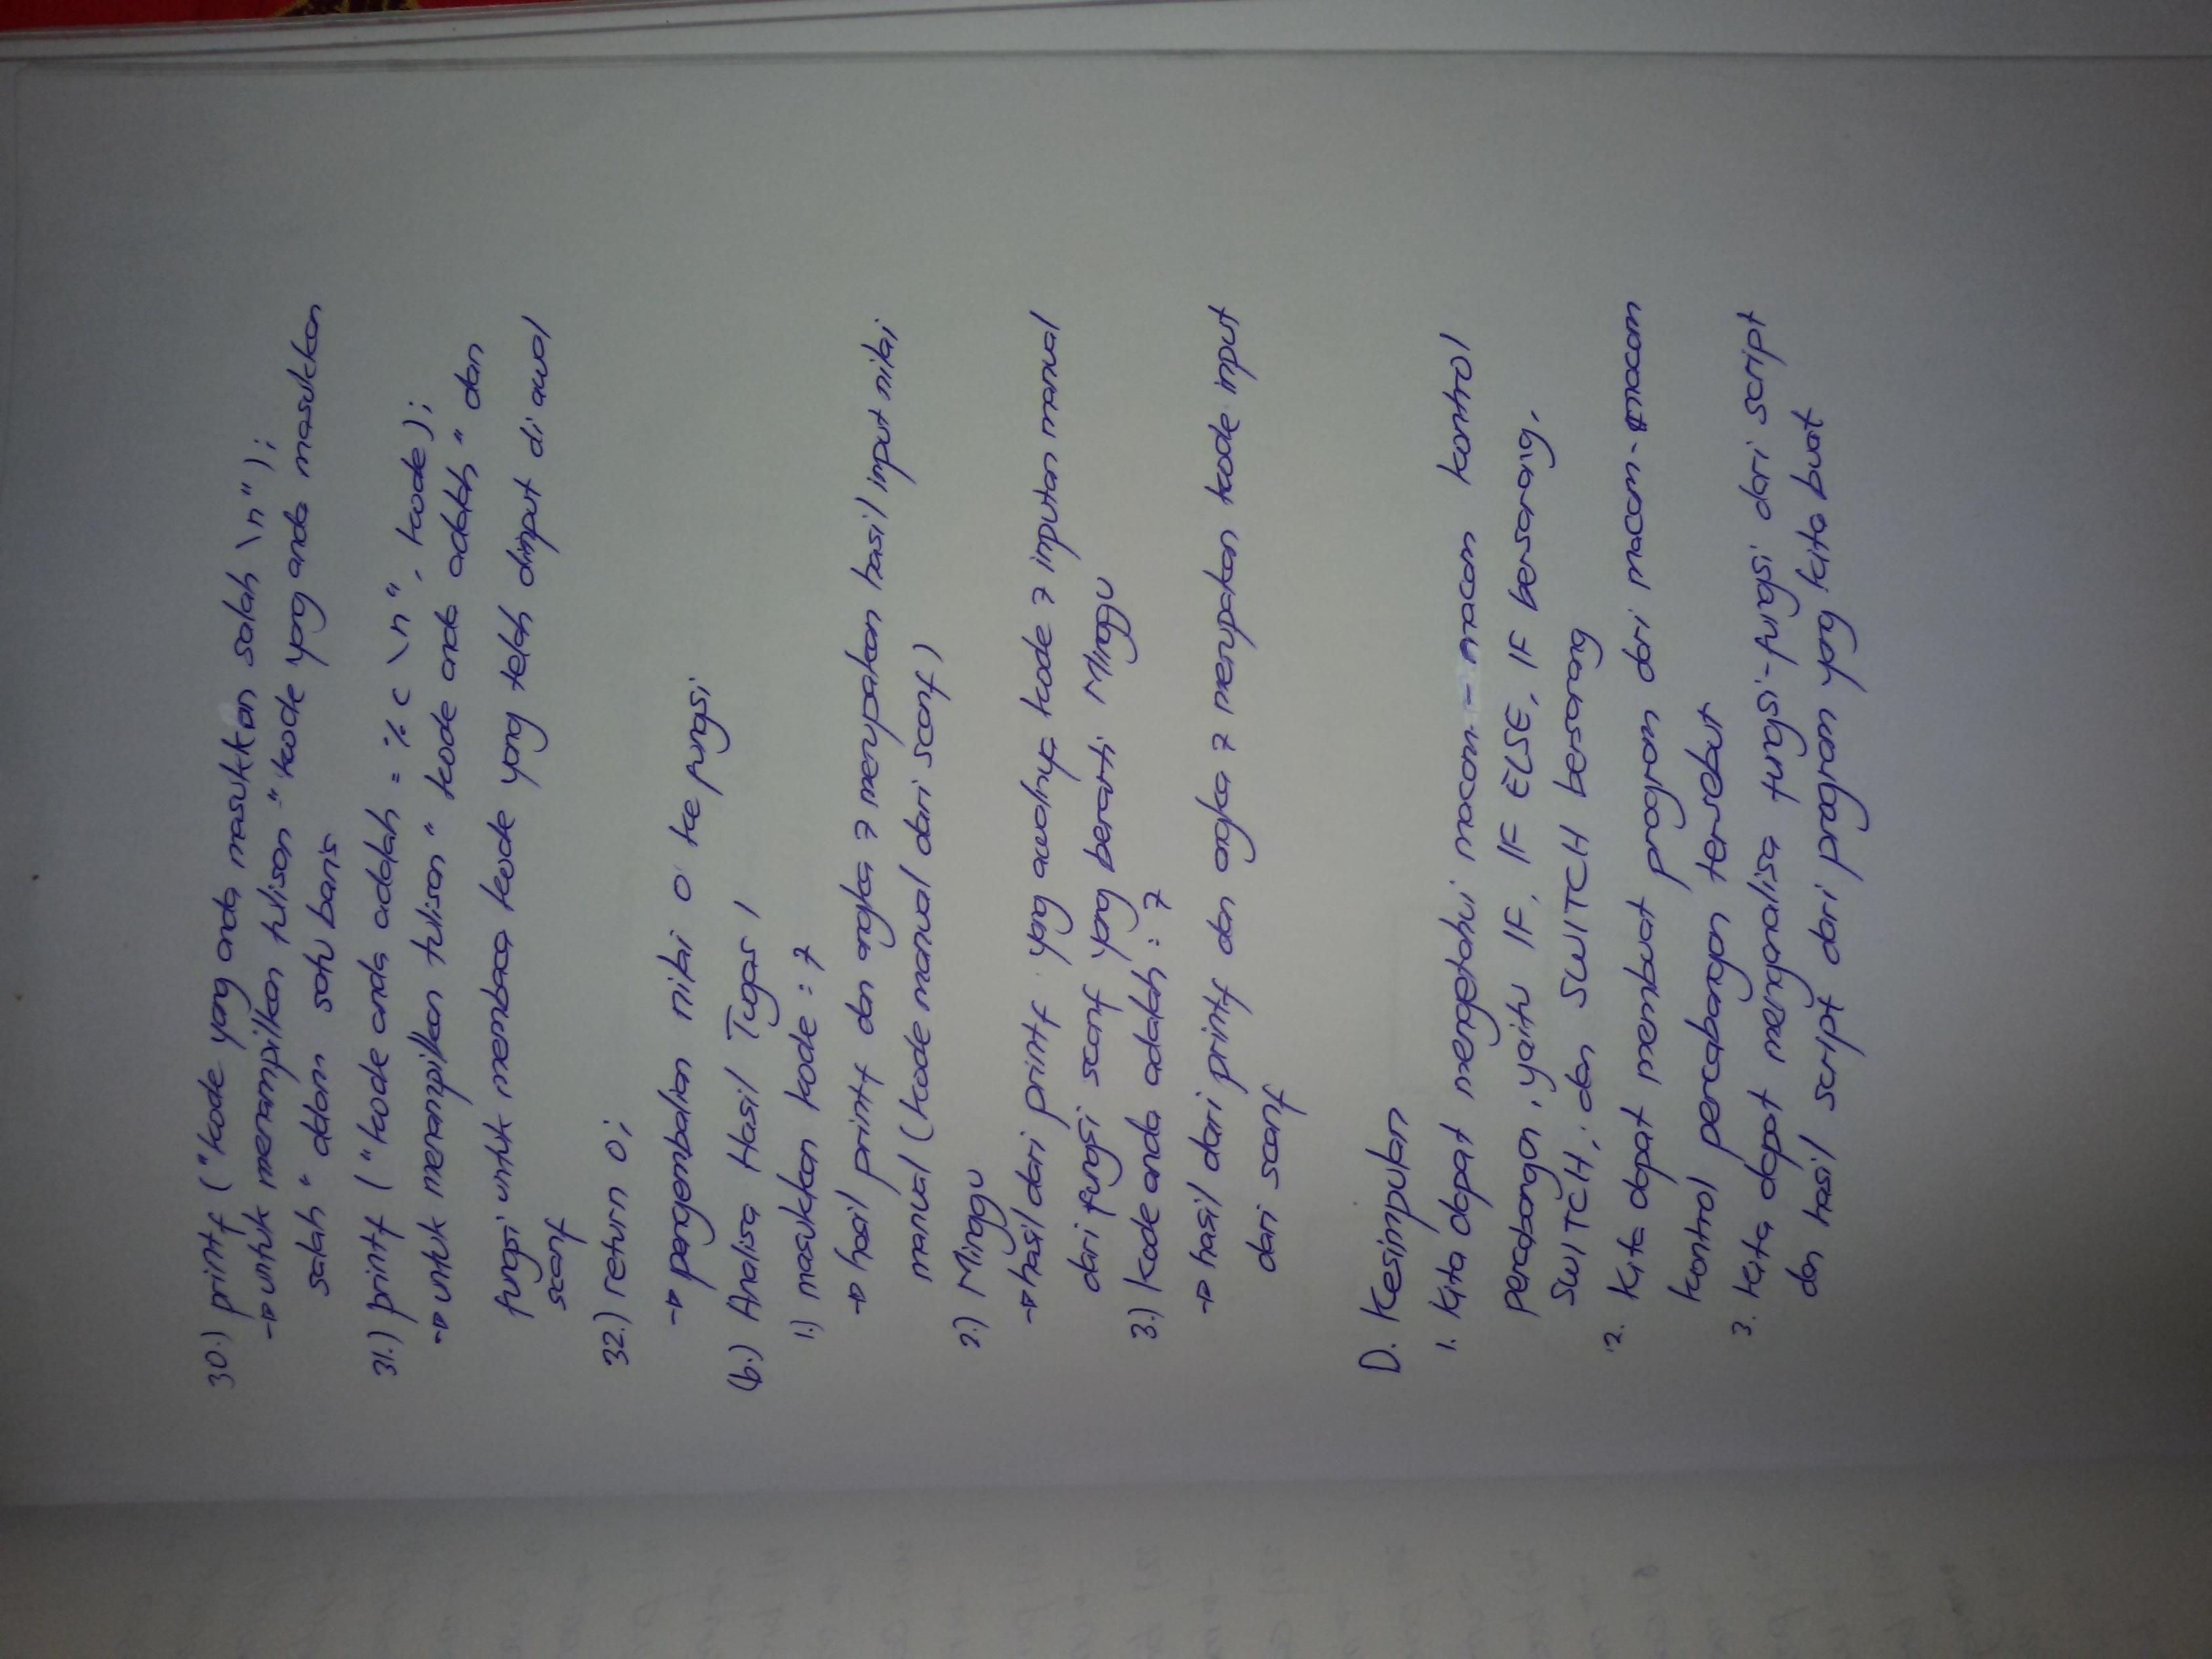 30.) printf ("kode yang anda masukkan salah \n");
→ untuk menampilkan tulisan "kode yang anda masukkan
salah" dalam satu baris
31.) printf ("kode anda adalah = %c \n", kode);
→ untuk menampilkan tulisan "kode anda adalah" dan
fungsi untuk membaca kode yang telah diinput di awal
scanf
32.) return 0;
→ pengembalian nilai 0 ke fungsi
(b.) Analisa Hasil Tugas 1
1.) masukkan kode : 7
→ hasil printf dan angka 7 merupakan hasil input nilai
manual (kode manual dari scanf)
2.) Minggu
→ hasil dari printf yang awalnya kode 7 inputan manual
dari fungsi scanf yang berarti Minggu
3.) Kode anda adalah : 7
→ hasil dari printf dan angka 7 merupakan kode input
dari scanf
D. Kesimpulan
1. Kita dapat mengetahui macam - macam kontrol
percabangan, yaitu IF, IF ELSE, IF bersarang,
SWITCH, dan SWITCH bersarang
2. Kita dapat membuat program dari macam-macam
kontrol percabangan tersebut
3. Kita dapat menganalisa fungsi-fungsi dari script
dan hasil script dari program yang kita buat